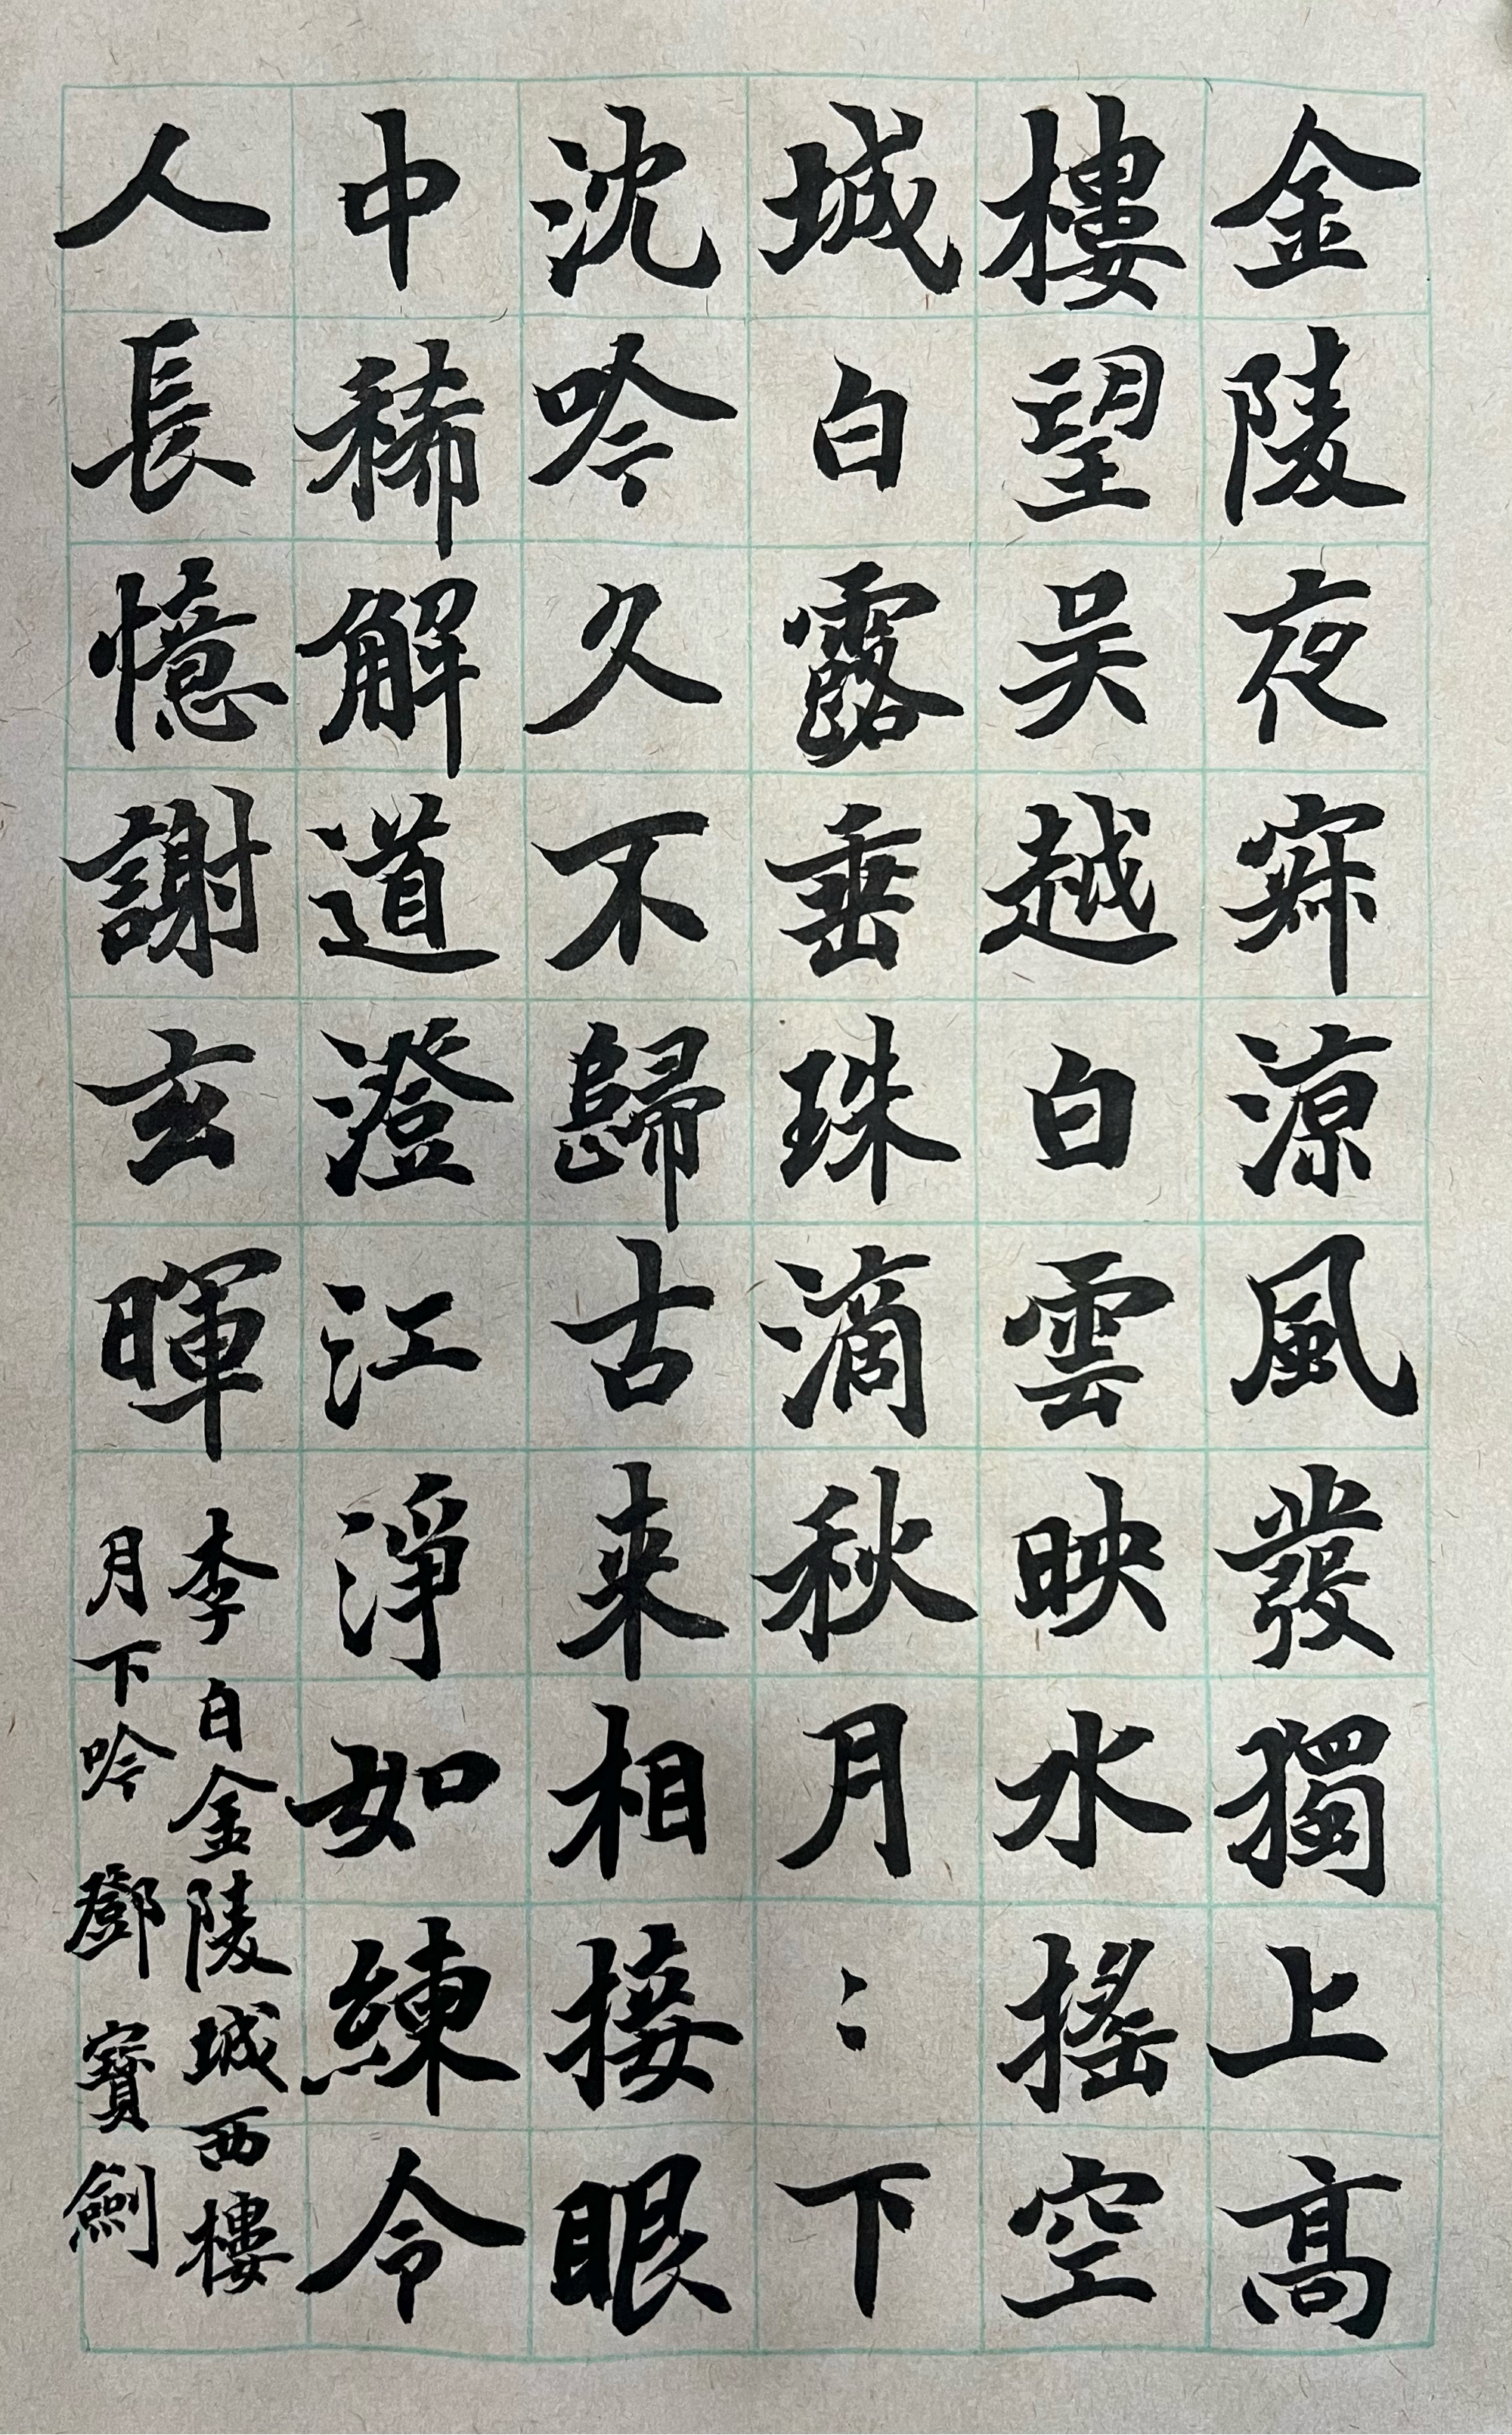 金陵夜寂涼風發獨上高
樓望吴越白雲映水搖空
城白露垂珠滴秋月︰下
沈吟久不歸古来相接眼
中稀解道澄江淨如練令
人長憶謝玄暉
李白金陵城西樓
月下吟 鄧寶劍